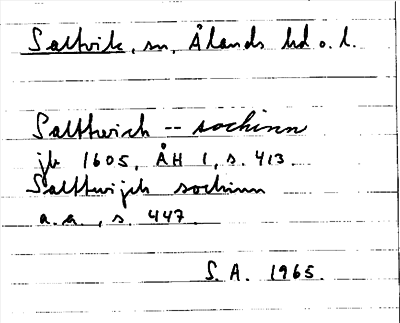 Saltvik, sn, Ålands hd o. l.
Salttwich -- sochinn
jb 1605, ÅH 1, s. 413.
Salttwijch sochinn
a.a., s. 447.
S.A. 1965.